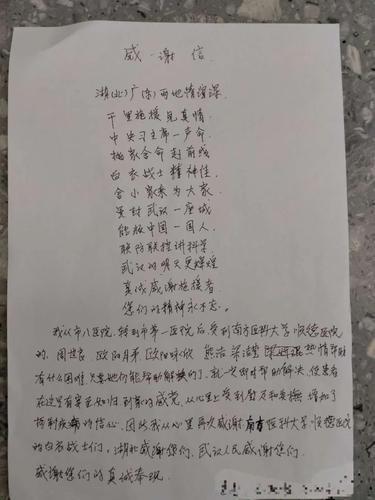 感谢信
湖(北)广(东)两地情谊深
千里施援见真情
中央习主席一声命
抛家舍命赴前线
白衣战士精神佳
舍小家来为大家
宾封武汉一座城
能救中国一国人
联防联控讲科学
武汉的明天更辉煌
真诚感谢施援者
您们的精神永不忘
我从市八医院,转到市第一医院后,受到南方医科大学顺德医院
的,周世昌 欧阳 欧阳 熊治 梁洁莹 热情帮助
有什么困难只要她们能帮助解决的了,就一定即时帮助解决,使患者
在这里有宾至如归到家的感觉,从心里上受到启发和安抚,增加了
抗制疾病的信心,因此我从心里再次感谢南方医科大学顺德医院
的白衣战士们,湖北感谢您们,武汉人民感谢您们
感谢您们的真诚奉现